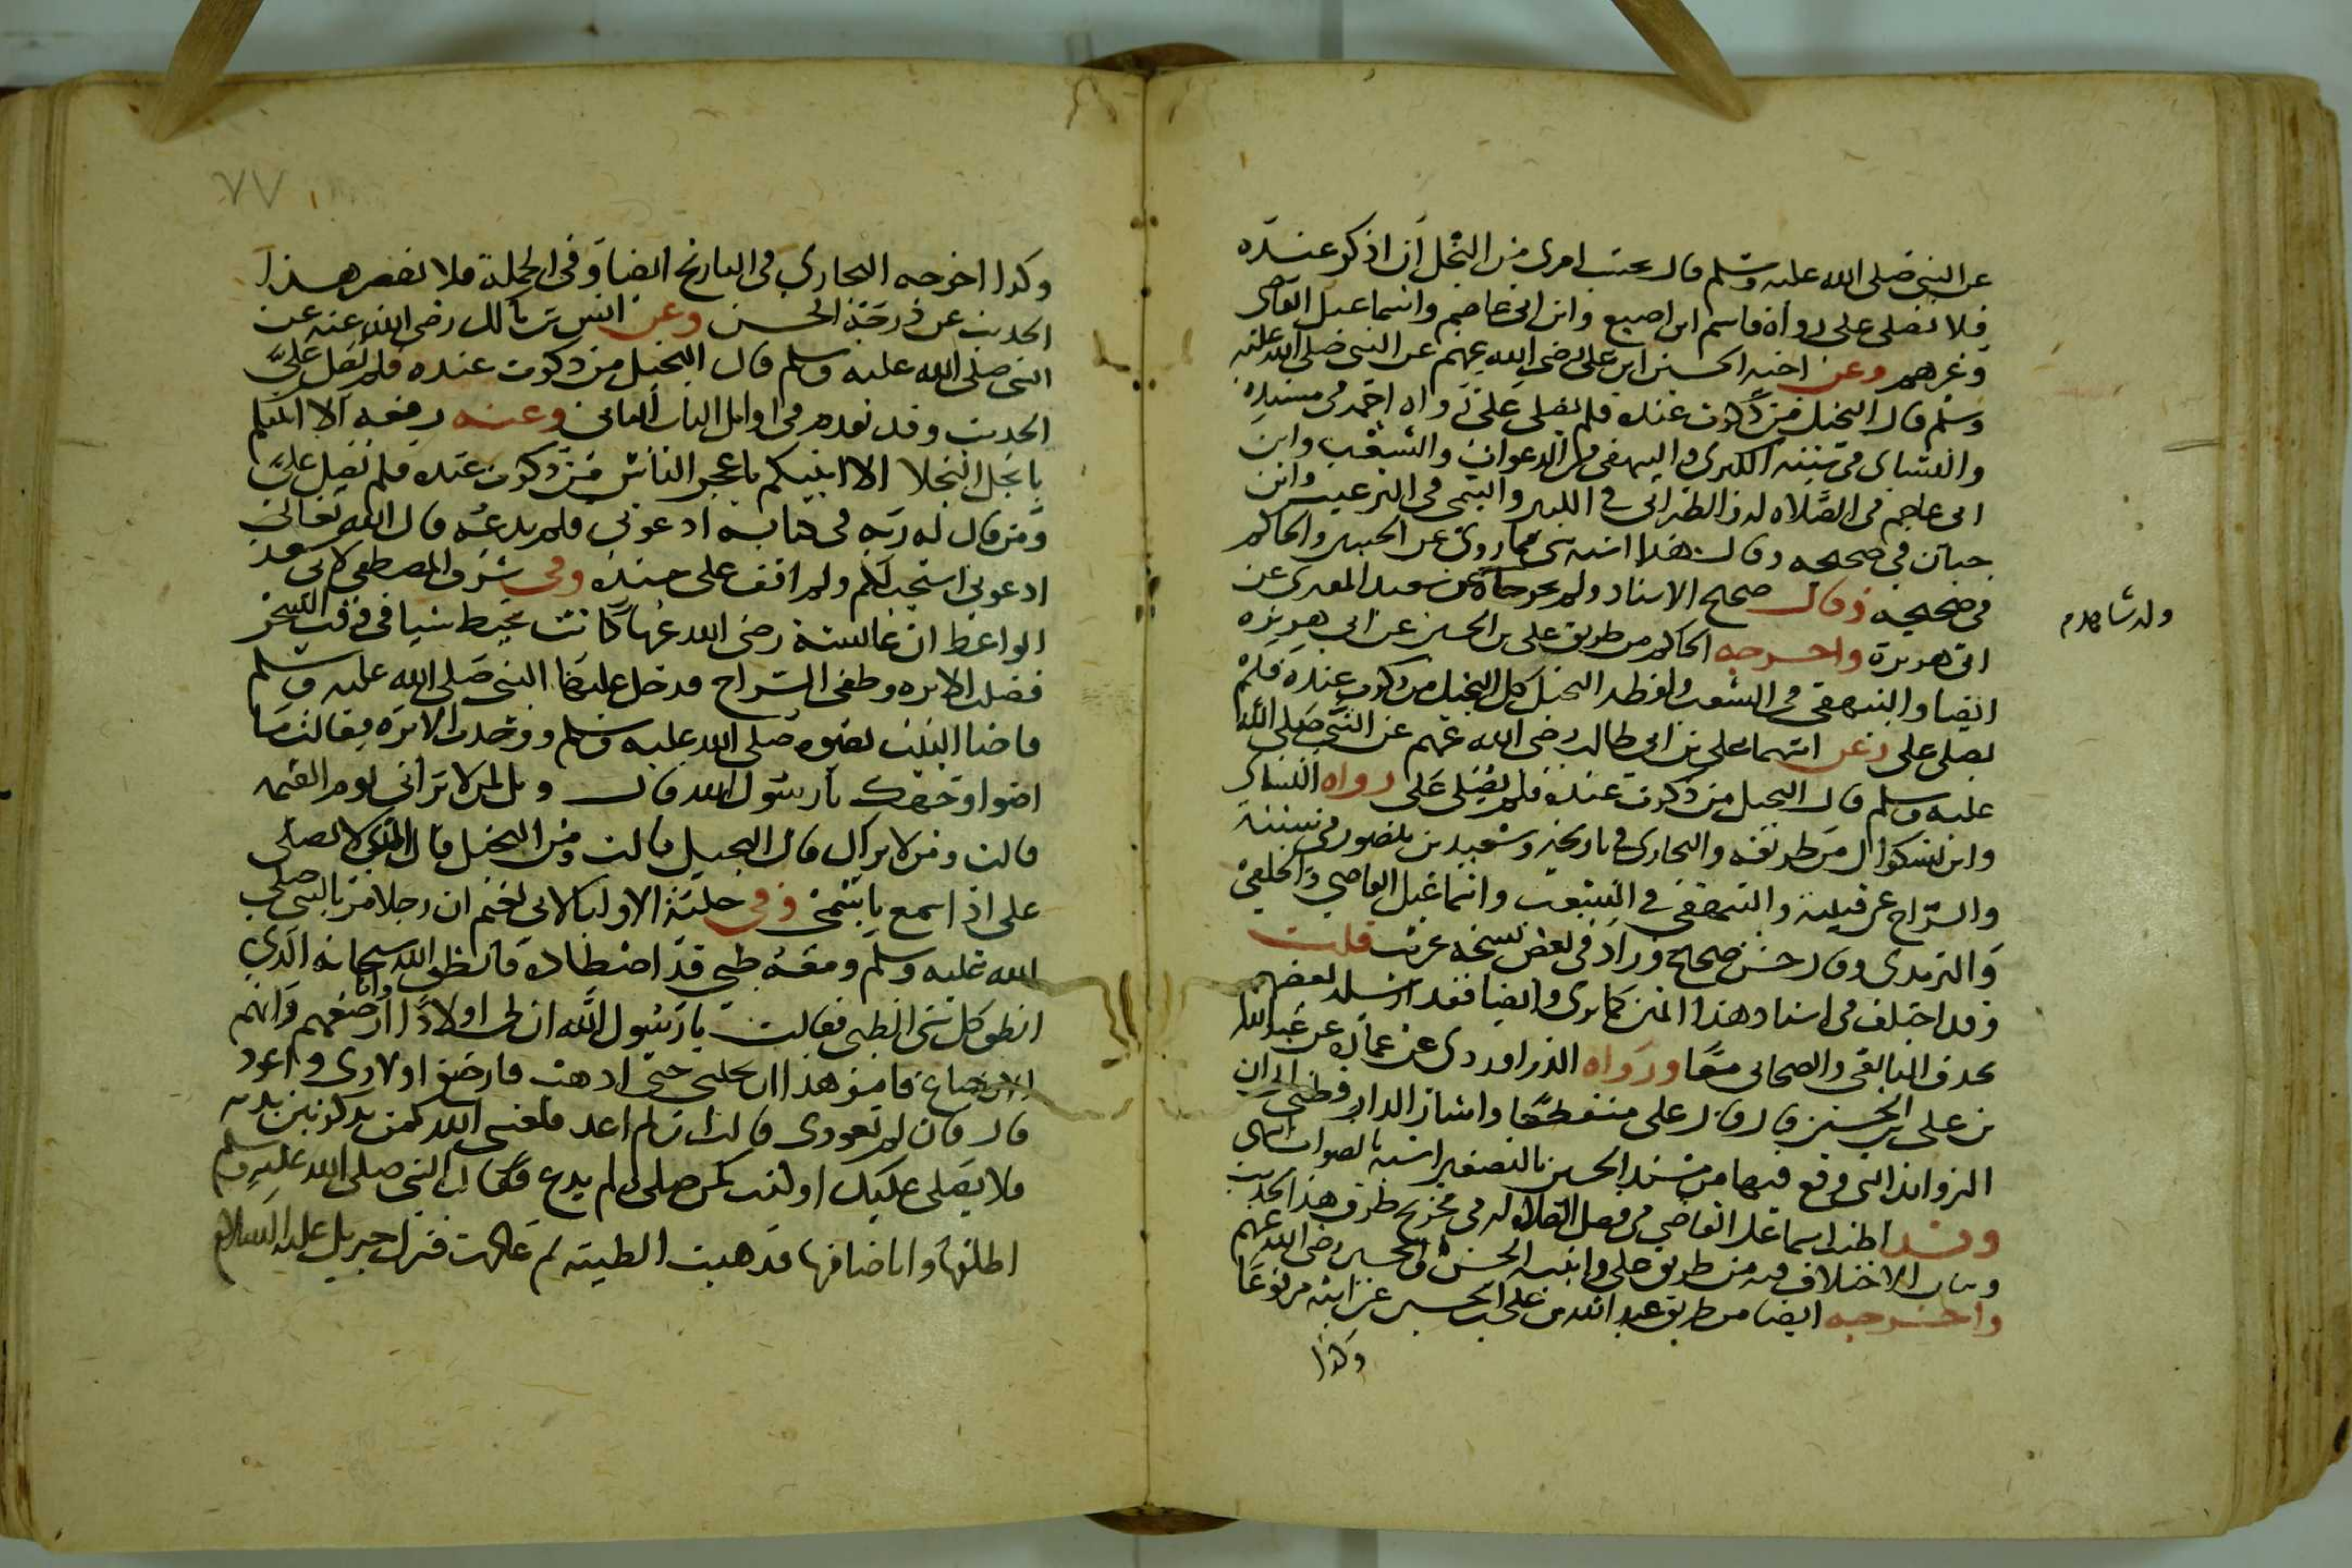 عن النبي صلى الله عليه وسلم قال بحسب امرئ من البخل أن اذكر عنده
فلا يصلى على رواه قاسم ابن اصبغ وابن ابى عاصم واسماعيل القاضى
وغيرهم وعن اخيه الحسين ابن على رضى الله عنهم عن النبى صلى الله عليه
وسلم قال البخيل من ذكرت عنده فلم يصلى على رواه احمد فى مسنده
والنسائى فى سننه الكبرى والبيهقى فى الدعوات والشعب وابن
ابى عاصم فى الصلاه له والطبرانى فى الكبير والتيمى فى الترغيب وابن
حبان فى صحيحه وقال هذا اشبه شى مما روى عن الحسين والحاكم
فى صحيحه وقال صحيح الاسناد ولم يخرجاه عن سعيد المقبرى عن
ابى هريرة واخرجه الحاكم من طريق على بن الحسين عن ابى هريرة
ايضا والبيهقى فى الشعب ولفظه البخيل كل البخيل من ذكرت عنده فلم
يصلى على وعن ابيهما على بن ابى طالب رضى الله عنهم عن النبى صلى الله
عليه وسلم قال البخيل من ذكرت عنده فلم يصلى على رواه النسائى
وابن بشكوال من طريقه والبخارى فى تاريخه وسعيد بن منصور فى سننه
والسراج عن قتيبة والبيهقى فى الشعب واسماعيل القاضي والخلعى
والترمذى وقال حسن صحيح وزاد فى بعض نسخه غريب قلت
وقد اختلف فى اسناد هذا المتن كما ترى وايضا فقد ارسله بعضهم
بحذف التابعى والصحابى معا ورواه الدراوردى عن عمارة عن عبد الله
بن على بن الحسين قال قال على منقطعا واشار الدارقطنى الى ان
الرواية التى وقع فيها من مسند الحسين بالتصغير اشبه بالصواب
وقد اطنب اسماعيل القاضي فى فضل الصلاة له فى تخريج طرق هذا الحديث
وبيان الاختلاف فيه من طريق على وابنيه الحسن والحسين رضى الله عنهم
واخرجه ايضا من طريق عبد الله بن على بن الحسين عن ابيه مرفوعا
وكذا
وله شاهد م
٧٧
وكذا اخرجه البخاري فى التاريخ ايضا وفى الجملة فلا يقصر هذا
الحديث عن درجة الحسن وعن انس بن مالك رضى الله عنه عن
النبى صلى الله عليه وسلم قال البخيل من ذكرت عنده فلم يصل علىّ
الحديث وقد تقدم فى اوائل الباب الثانى وعنه رفعه الا انبئكم
بابخل البخلا الا انبئكم باعجز الناس من ذكرت عنده فلم يصل علىّ
ومن قال له ربه فى كتابه ادعونى فلم يدعه قال الله تعالى
ادعونى استجب لكم ولم اقف على سنده وفى شرف المصطفى لابى سعد
الواعظ ان عائشة رضى الله عنها كانت تخيط شيا فى وقت السحر
فضلت الابره وطفى السراج فدخل عليها النبى صلى الله عليه وسلم
فاضا البيت بضوه صلى الله عليه وسلم ووجدت الابره فقالت ما
اضوا وجهك يا رسول الله قال ويل لمن لا يرانى يوم القيمه
قالت ومن لا يراك قال البخيل قالت ومن البخيل قال الذى لا يصلى
على اذ اسمع باسمى وفى حلية الاوليا لابى نعيم ان رجلا مر بالنبى صلى
الله عليه وسلم ومعه ظبى قد اصطاده فانطق الله سبحانه الذى
انطق كل شى الظبى فقالت يا رسول الله ان لى اولادا وانا ارضعهم وانهم
الان جياع فامر هذا ان يخلينى حتى اذهب فارضع اولادى واعود
قال فان لم تعودى قالت ان لم اعد فلعنى الله كمن تذكر بين يديه
فلا يصلى عليك او كنت كمن صلى ولم يدع فقال النبى صلى الله عليه وسلم
اطلقها وانا ضامنها فذهبت الظبية ثم عادت فنزل جبريل عليه السلام